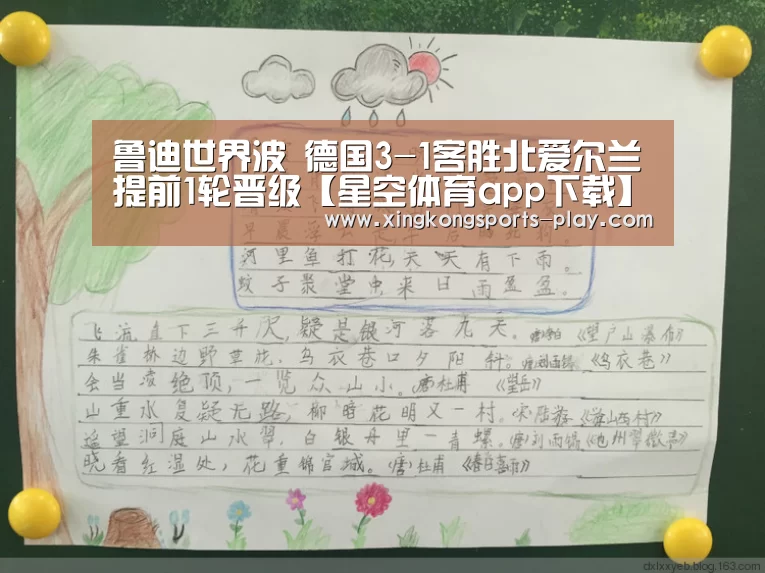 鲁迪世界波 德国3-1客胜北爱尔兰
提前1轮晋级【星空体育app下载】
www.xingkongsports-play.com
河里鱼打花,天天有下雨。
蚊子聚堂中来日雨盈盈。
飞流直下三千尺,疑是银河落九天。《望庐山瀑布》
朱雀桥边野草花,乌衣巷口夕阳斜。《乌衣巷》
会当凌绝顶,一览众山小。唐杜甫《望岳》
山重水复疑无路,柳暗花明又一村。宋陆游《游山西村》
遥望洞庭山水翠,白银丹里一青螺。
晓看红湿处,花重锦官城。(唐)杜甫《春日喜雨》
dxlxxyeb.blog.163.com